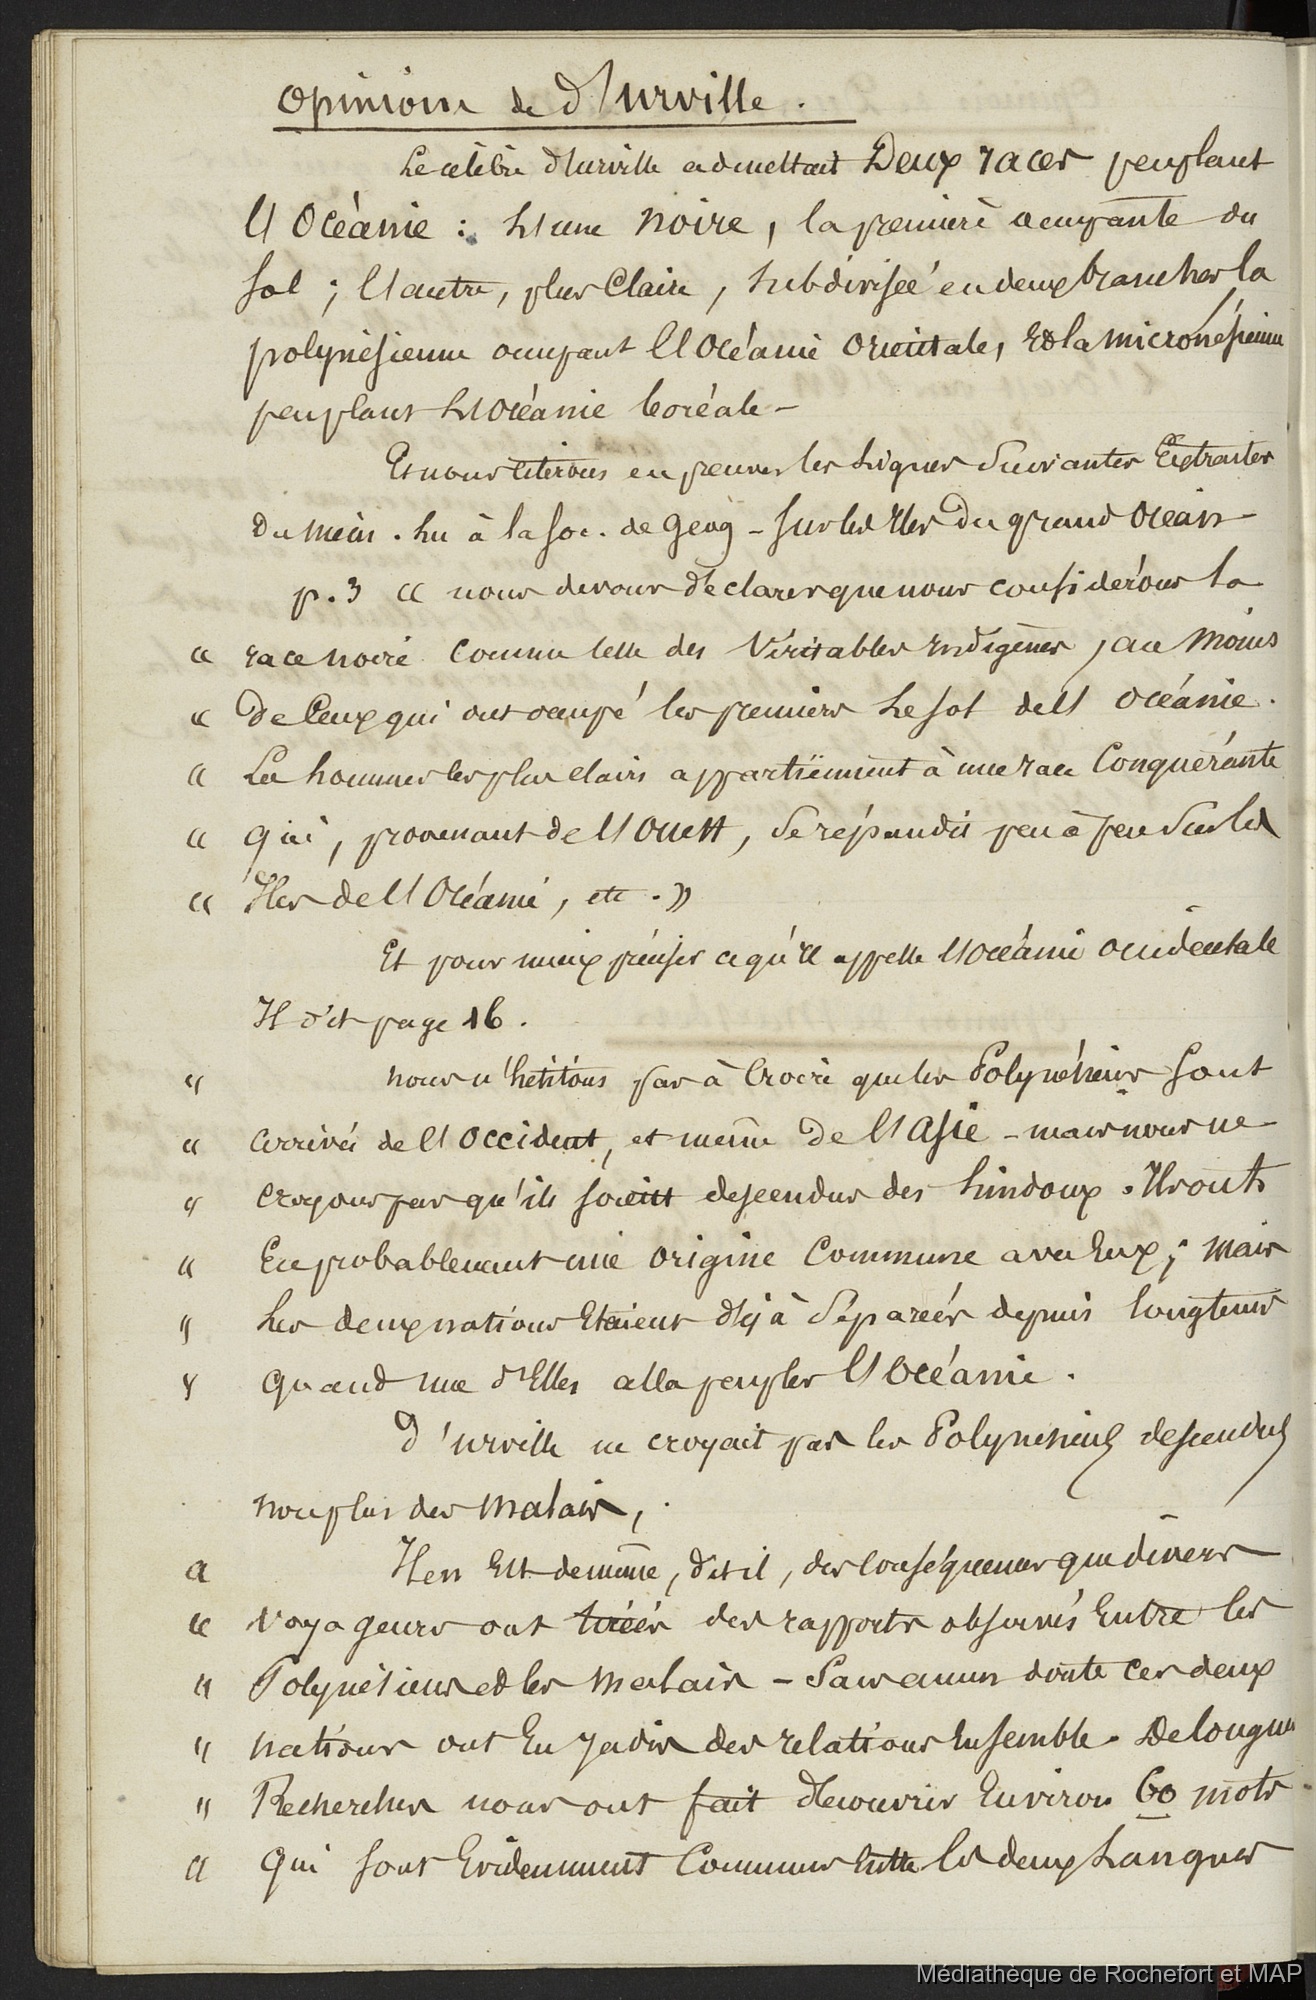 Opinion de d'Urville.
Le célèbre d'Urville admettait Deux races peuplant
l'Océanie : l'une noire, la première occupante du
sol ; l'autre, plus Claire, subdivisée en deux branches la
polynésienne occupant l'Océanie Orientale, et la micronésienne
peuplant l'Océanie boréale -
Et nous citerons en preuves les lignes suivantes Extraites
du mém. lu à la soc. de Géog - sur les Iles du grand Océan -
p. 3 « nous devons déclarer que nous considérons la
« race noire comme celle des Véritables indigènes, au moins
« de Ceux qui ont occupé les premiers le sol de l'Océanie.
« Les hommes les plus clairs appartiennent à une race Conquérante
« qui, provenant de l'ouest, se répandit peu à peu sur les
« Iles de l'Océanie, etc. »
Et pour mieux préciser ce qu'il appelle l'Océanie occidentale
Il dit page 16.
« nous n'hésitons pas à Croire que les Polynésiens sont
« arrivés de l'Occident, et même de l'Asie - mais nous ne
« croyons pas qu'ils soient descendus des hindoux. Ils ont
« Eu probablement une origine Commune avec Eux ; mais
« les deux nations Etaient déjà Séparées depuis longtems
« quand une d'Elles alla peupler l'Océanie.
d'Urville ne croyait pas les Polynésiens descendus
non plus des Malais,
« Il en Est de même, dit il, des conséquences que divers
« voyageurs ont tirées des rapports observés Entre les
« Polynésiens et les Malais - Sans aucun doute ces deux
« nations ont Eu jadis des relations Ensemble. De longues
« Recherches nous ont fait découvrir Environ 60 mots
« qui sont Evidemment Communs Entre les deux Langues
Médiathèque de Rochefort et MAP